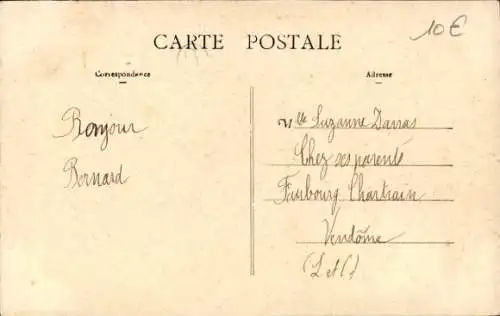 10€
CARTE POSTALE
Correspondance
Adresse
Bonjour
Bernard
Mlle Suzanne Darras
Chez ses parents
Faubourg Chartrain
Vendôme
(L et C)